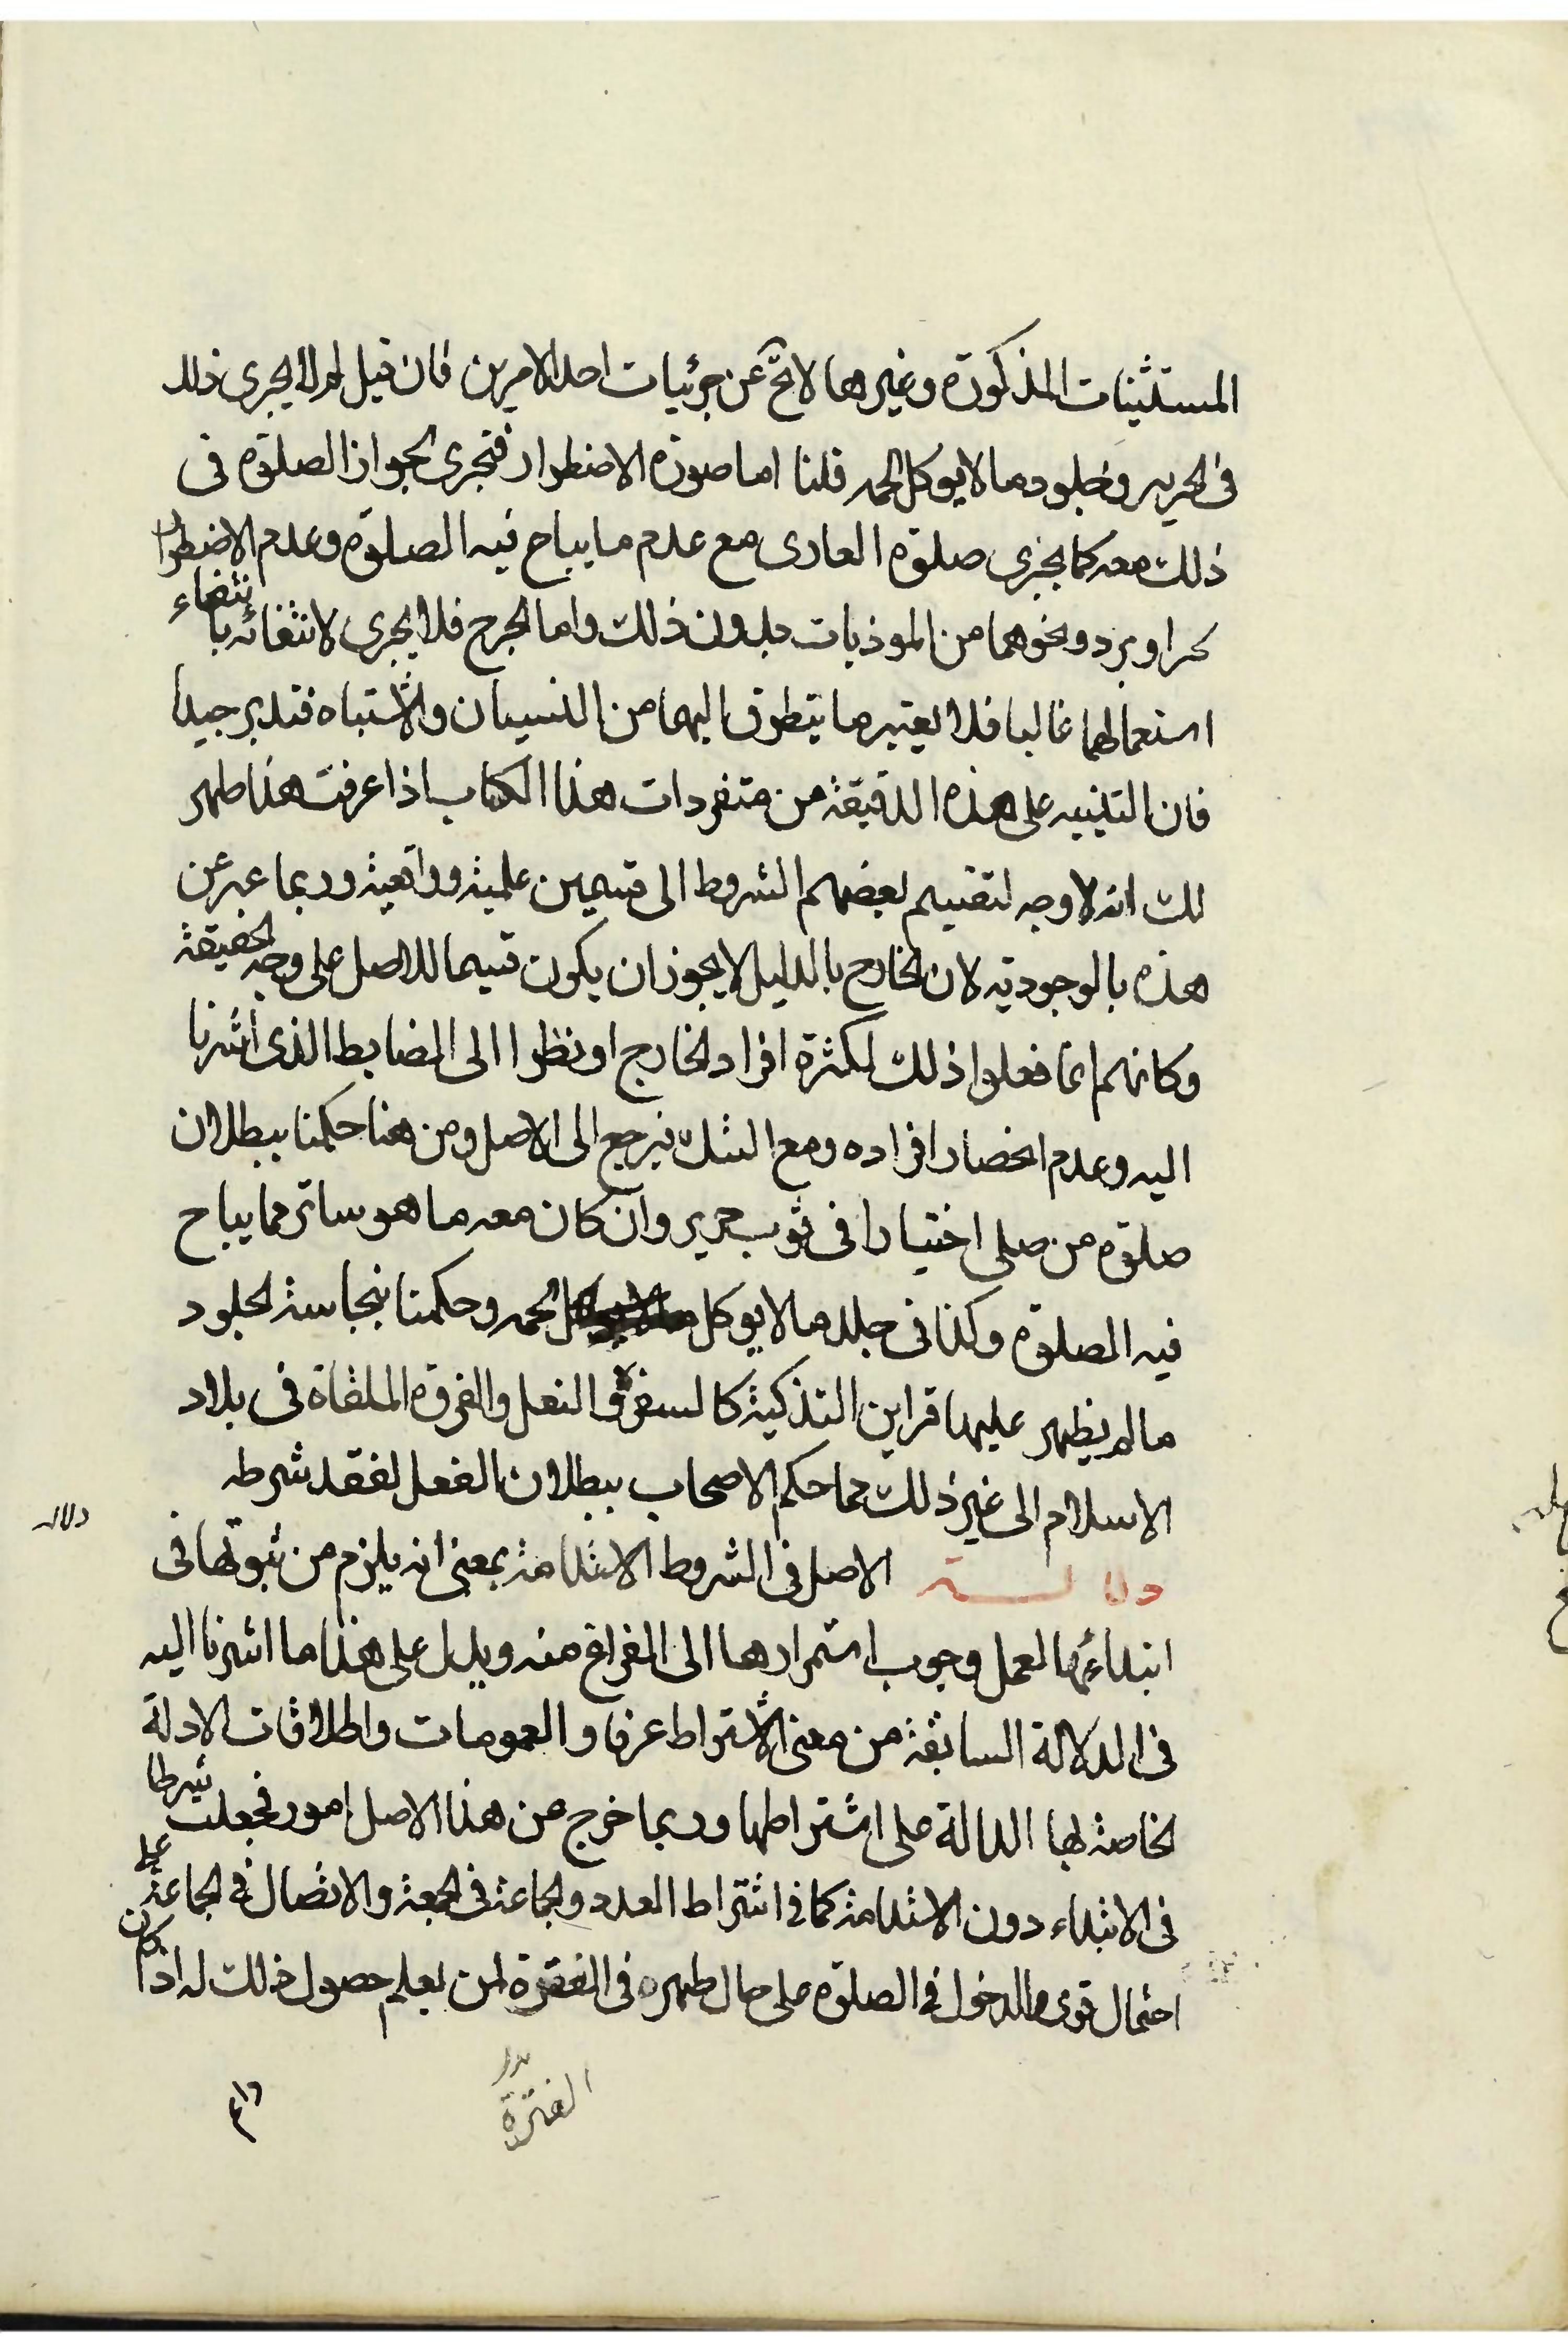 المستثنيات المذكورة وغيرها لا تخ عن جزئيات احد الامرين فان قيل لم لا يجرى ذلك
فى الحرير وجلود ما لا يوكل لحمه قلنا اما صورة الاضطرار فتجرى لجواز الصلوة فى
ذلك معه كما يجزى صلوة العارى مع عدم ما يباح فيه الصلوة وعدم الاضطرار
لحر او برد ونحوهما من الموذيات بدون ذلك واما الحرج فلا يجرى لانتفائه بانتفاء
استعمالهما غالبا فلا يعتبر ما يتطرق اليهما من النسيان والاشتباه فتدبر جيدا
فان التنبيه على هذه الدقيقة من متفردات هذا الكتاب اذا عرفت هذا ظهر
لك انه لا وجه لتقسيم بعضهم الشروط الى قسمين علمية وواقعية وربما عبر عن
هذه بالوجودية لان الخارج بالدليل لا يجوز ان يكون قسيما للاصل على وجه الحقيقة
وكانهم انما فعلوا ذلك لكثرة افراد الخارج او نظرا الى الضابط الذى اشرنا
اليه وعدم انحصار افراده ومع الشك فيرجع الى الاصل ومن هنا حكمنا ببطلان
صلوة من صلى اختيارا فى ثوب حرير وان كان معه ما هو ساتر مما يباح
فيه الصلوة وكذا فى جلد ما لا يوكل لحمه وحكمنا بنجاسة الجلود
ما لم يظهر عليها قراين التذكية كالسفرة والنعل والفروة الملقاة فى بلاد
الاسلام الى غير ذلك مما حكم الاصحاب ببطلان الفعل لفقد شرطه
دلالة
دلالــــة الاصل فى الشروط الاستدامة بمعنى انه يلزم من ثبوتها فى
ابتداء العمل وجوب استمرارها الى الفراغ منه ويدل على هذا ما اشرنا اليه
فى الدلالة السابقة من معنى الاشتراط عرفا والعمومات واطلاقات الادلة
الخاصة لها الدالة على اشتراطها وربما خرج من هذا الاصل امور فجعلت شرطا
فى الابتداء دون الاستدامة كما فى اشتراط العدد والجماعة فى الجمعة والاتصال فى الجماعة على
احتمال قوى والدخول فى الصلوة على حال طهره فى الفقرة لمن يعلم حصول ذلك له اذا كان
الفترة